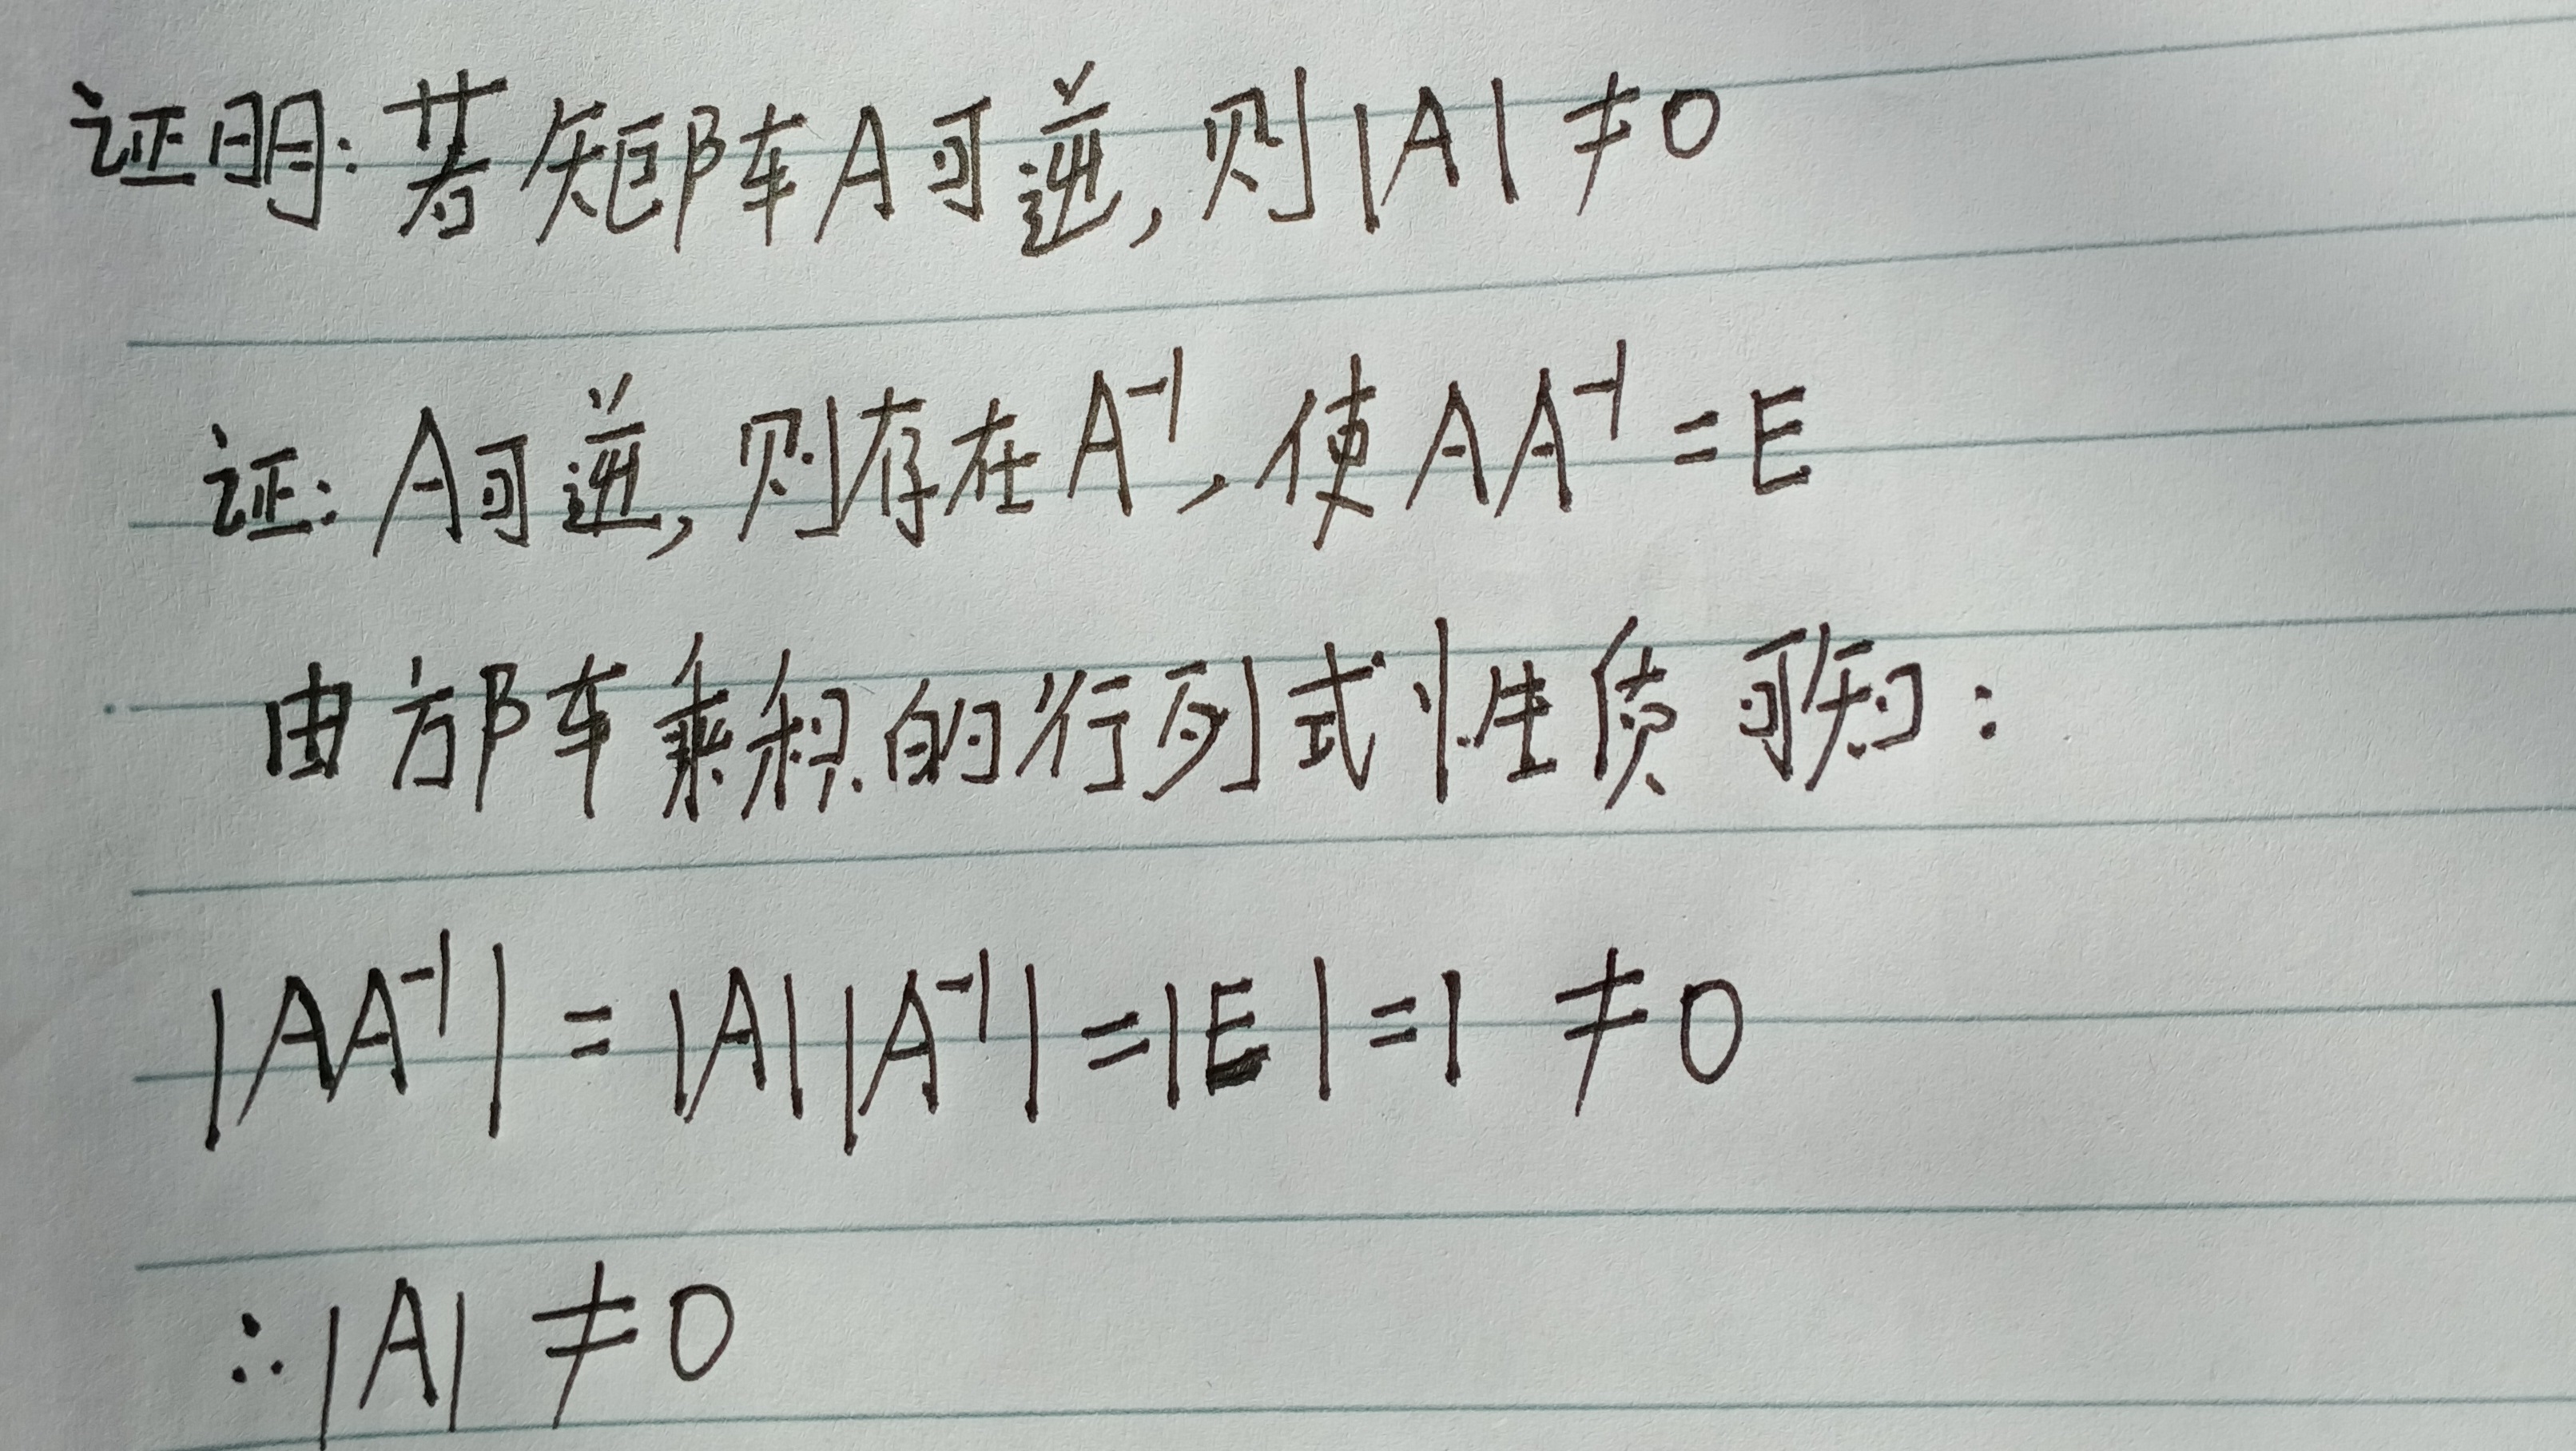 证明:若矩阵A可逆,则|A|≠0
证:A可逆,则存在A⁻¹,使AA⁻¹=E
由方阵乘积的行列式性质可知:
|AA⁻¹|=|A||A⁻¹|=|E|=1≠0
∴|A|≠0